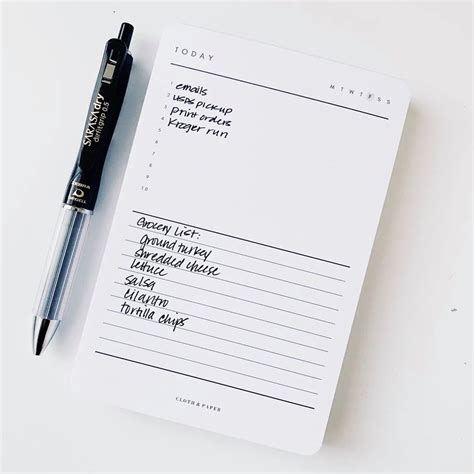 TODAY
M T W T F S S
1 emails
2 USPS pickup
3 Print orders
4 Kroger run
5
6
7
8
9
10
Grocery List:
ground turkey
shredded cheese
lettuce
salsa
cilantro
tortilla chips
CLOTH & PAPER
SARASA dry
airfit grip 0.5
ZEBRA